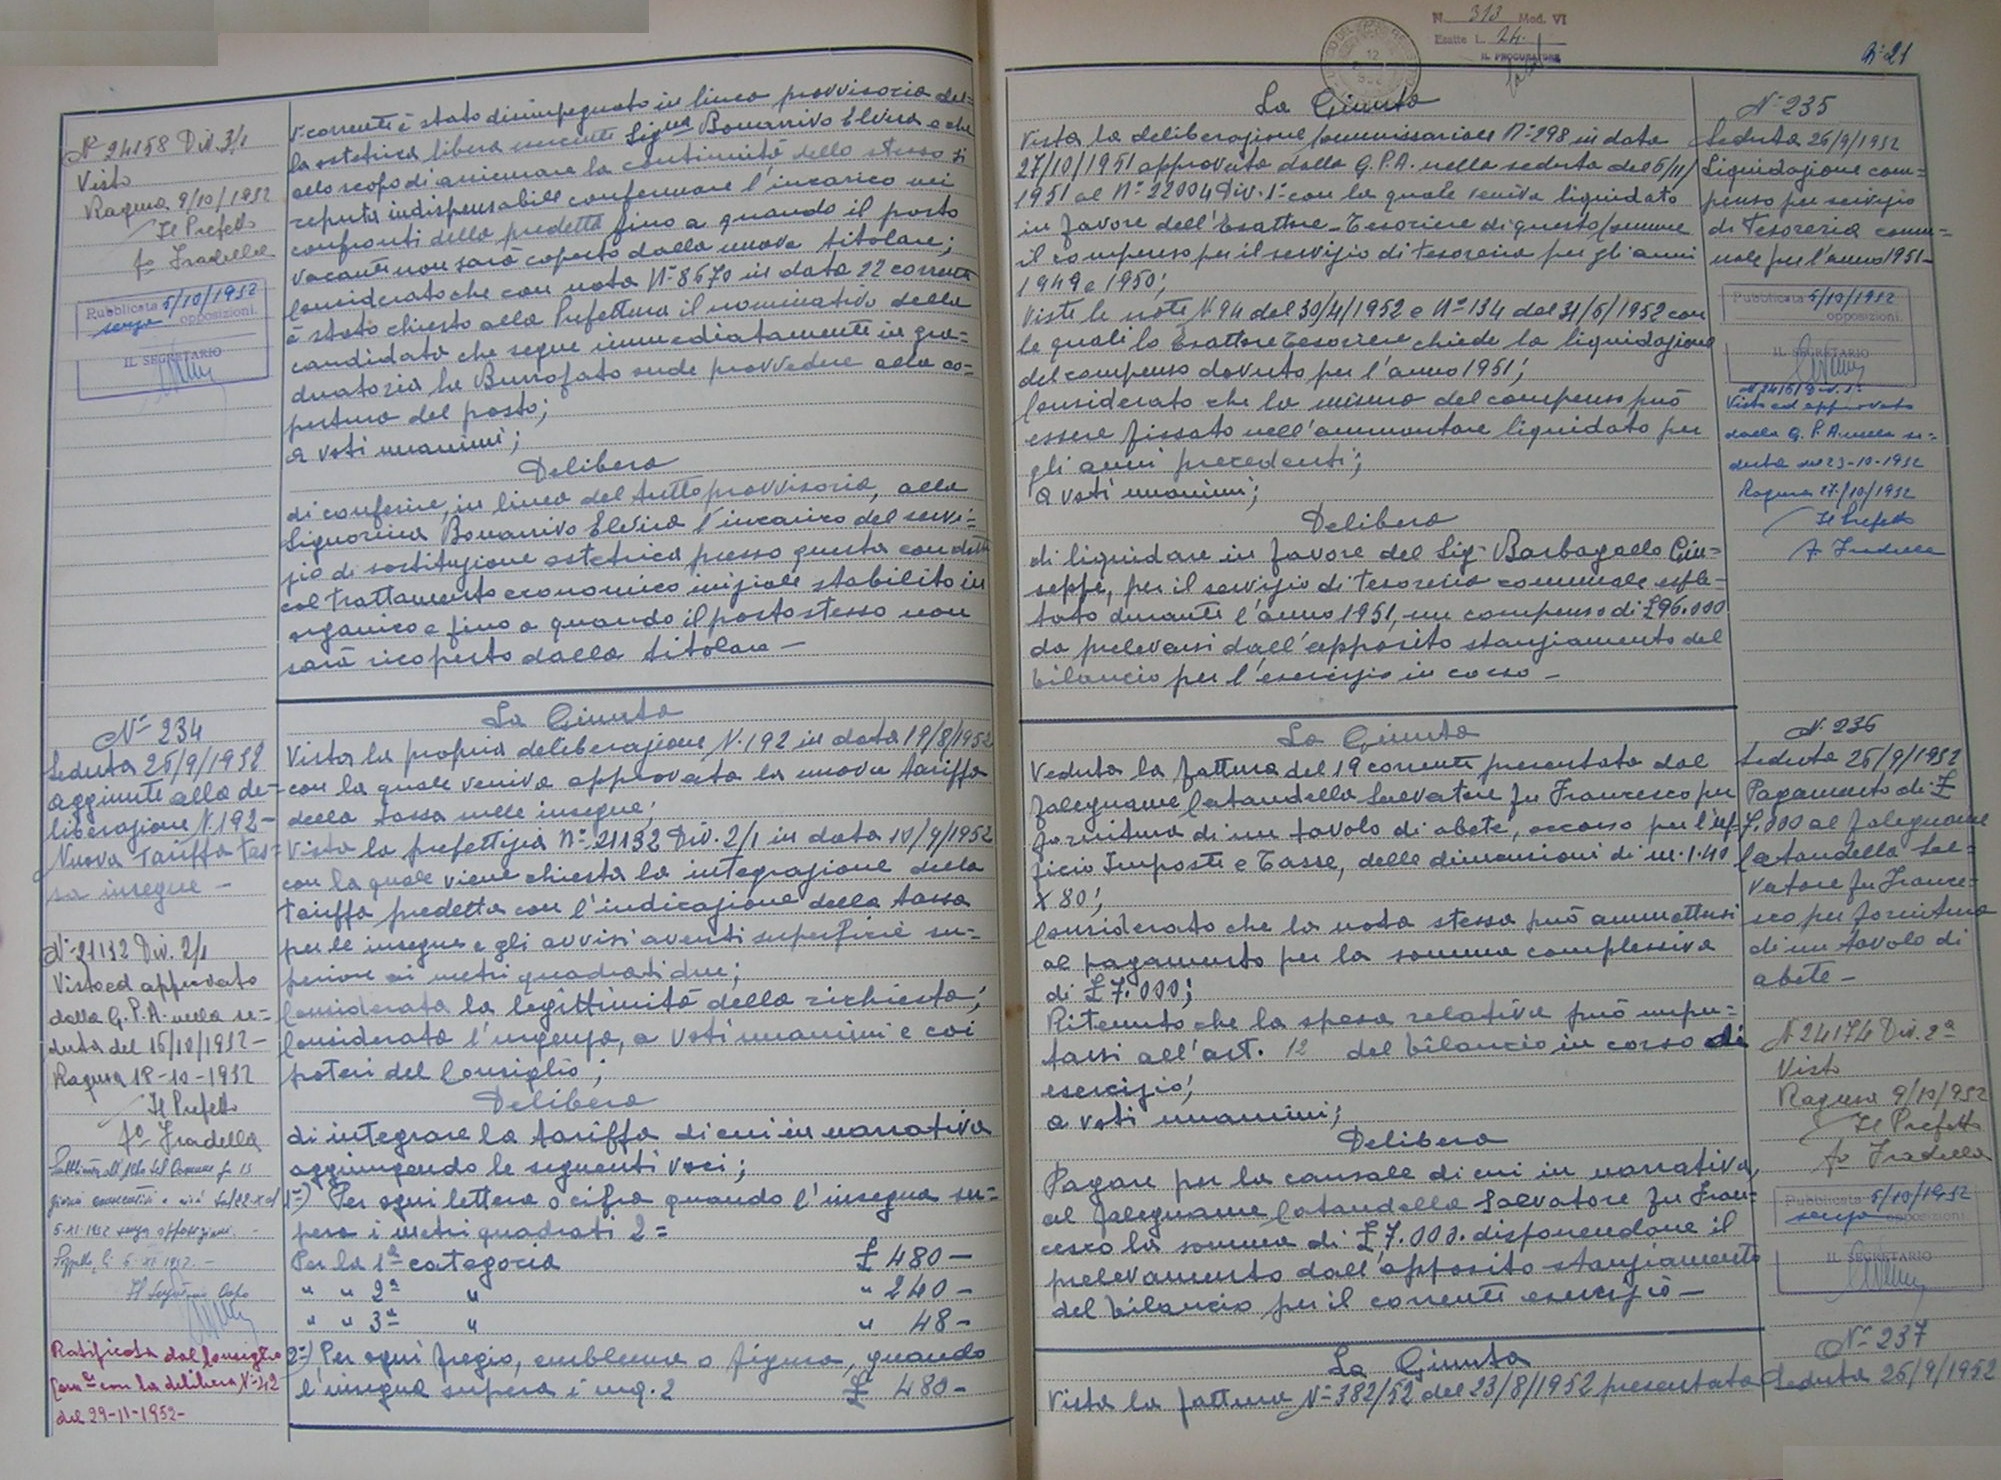 N° 24158 Div. 3/1
Visto
Ragusa 9/10/1952
Il Prefetto
fo Fradella
Pubblicata 5/10/1952
senza opposizioni.
IL SEGRETARIO
N° 234
Seduta 26/9/1952
aggiunte alla de-
liberazione N. 192-
Nuova Tariffa tas-
sa insegne -
N° 21132 Div. 2/1
Visto ed approvato
dalla G.P.A. nella se-
duta del 16/10/1952-
Ragusa 18-10-1952
Il Prefetto
fo Fradella
giorni consecutivi e cioè dal 22-X al
6-XI-1952 senza opposizioni. -
Il Segretario Capo
Ratificata dal Consiglio
Com.le con la delibera N° 42
del 29-11-1952-
V corrente è stato disimpegnato in linea provvisoria dal-
la ostetrica libera esercente Sig.na Bonarrivo Elvira e che
allo scopo di assicurare la continuità dello stesso si
reputa indispensabile confermare l'incarico nei
confronti della predetta fino a quando il posto
vacante non sarà coperto dalla nuova titolare;
Considerato che con nota N° 8670 in data 22 corrente
è stato chiesto alla Prefettura il nominativo della
candidata che segue immediatamente in gra-
duatoria la Burrofato onde provvedere alla co-
pertura del posto;
a voti unanimi;
Delibera
di conferire, in linea del tutto provvisoria, alla
Signorina Bonarrivo Elvira l'incarico del servi-
zio di sostituzione ostetrica presso questa condotta
col trattamento economico iniziale stabilito in
organico e fino a quando il posto stesso non
sarà ricoperto dalla titolare -
La Giunta
Vista la propria deliberazione N. 192 in data 19/8/1952
con la quale veniva approvata la nuova tariffa
della tassa sulle insegne;
Vista la prefettizia N° 21132 Div. 2/1 in data 10/9/1952
con la quale viene chiesta la integrazione della
tariffa predetta con l'indicazione della tassa
per le insegne e gli avvisi aventi superficie su-
periore ai metri quadrati due;
Considerata la legittimità della richiesta;
Considerata l'urgenza, a voti unanimi e coi
poteri del Consiglio;
Delibera
di integrare la tariffa di cui in narrativa
aggiungendo le seguenti voci;
1°) Per ogni lettera o cifra quando l'insegna su-
pera i metri quadrati 2=
Per la 1ª categoria £ 480 -
" " 2ª " " 240 -
" " 3ª " " 48 -
2°) Per ogni fregio, emblema o figura, quando
l'insegna supera i mq. 2 £ 480 -
N. 313 Mod. VI
Esatte L. 24.
IL PROCURATORE
N° 21
La Giunta
Vista la deliberazione Commissariale N° 298 in data
27/10/1951 approvata dalla G.P.A. nella seduta del 6/11/
1951 al N° 22004 Div. 1ª con la quale veniva liquidato
in favore dell'Esattore-Tesoriere di questo Comune
il compenso per il servizio di tesoreria per gli anni
1949 e 1950;
Viste le note N. 94 del 30/4/1952 e N° 134 del 31/5/1952 con
le quali lo Esattore Tesoriere chiede la liquidazione
del compenso dovuto per l'anno 1951;
Considerato che la misura del compenso può
essere fissato nell'ammontare liquidato per
gli anni precedenti;
a voti unanimi;
Delibera
di liquidare in favore del Sig. Barbagallo Giu-
seppe, per il servizio di tesoreria comunale esple-
tato durante l'anno 1951, un compenso di £ 96.000
da prelevarsi dall'apposito stanziamento del
bilancio per l'esercizio in corso -
La Giunta
Veduta la fattura del 19 corrente presentata dal
falegname Catandella Salvatore fu Francesco per
fornitura di un tavolo di abete, occorso per l'uf-
ficio Imposte e Tasse, delle dimensioni di m. 1.40
X 80;
Considerato che la nota stessa può ammettersi
al pagamento per la somma complessiva
di £ 7.000;
Ritenuto che la spesa relativa può impu-
tarsi all'art. 12 del bilancio in corso di
esercizio;
a voti unanimi;
Delibera
Pagare per la causale di cui in narrativa,
al falegname Catandella Salvatore fu Fran-
cesco la somma di £ 7.000. disponendone il
prelevamento dall'apposito stanziamento
del bilancio per il corrente esercizio -
La Giunta
Vista la fattura N° 382/52 del 23/8/1952 presentata
N° 235
Seduta 26/9/1952
Liquidazione com-
penso per servizio
di tesoreria comu-
nale per l'anno 1951-
Pubblicata 5/10/1952
opposizioni.
IL SEGRETARIO
Visto ed approvato
dalla G.P.A. nella se-
duta del 23-10-1952
Ragusa 27/10/1952
Il Prefetto
fo Fradella
N. 236
Seduta 26/9/1952
Pagamento di £
7.000 al falegname
Catandella Sal-
vatore fu France-
sco per fornitura
di un tavolo di
abete -
N° 24174 Div. 2ª
Visto
Ragusa 9/10/1952
Il Prefetto
fo Fradella
Pubblicata 5/10/1952
senza opposizioni
IL SEGRETARIO
N° 237
Seduta 26/9/1952